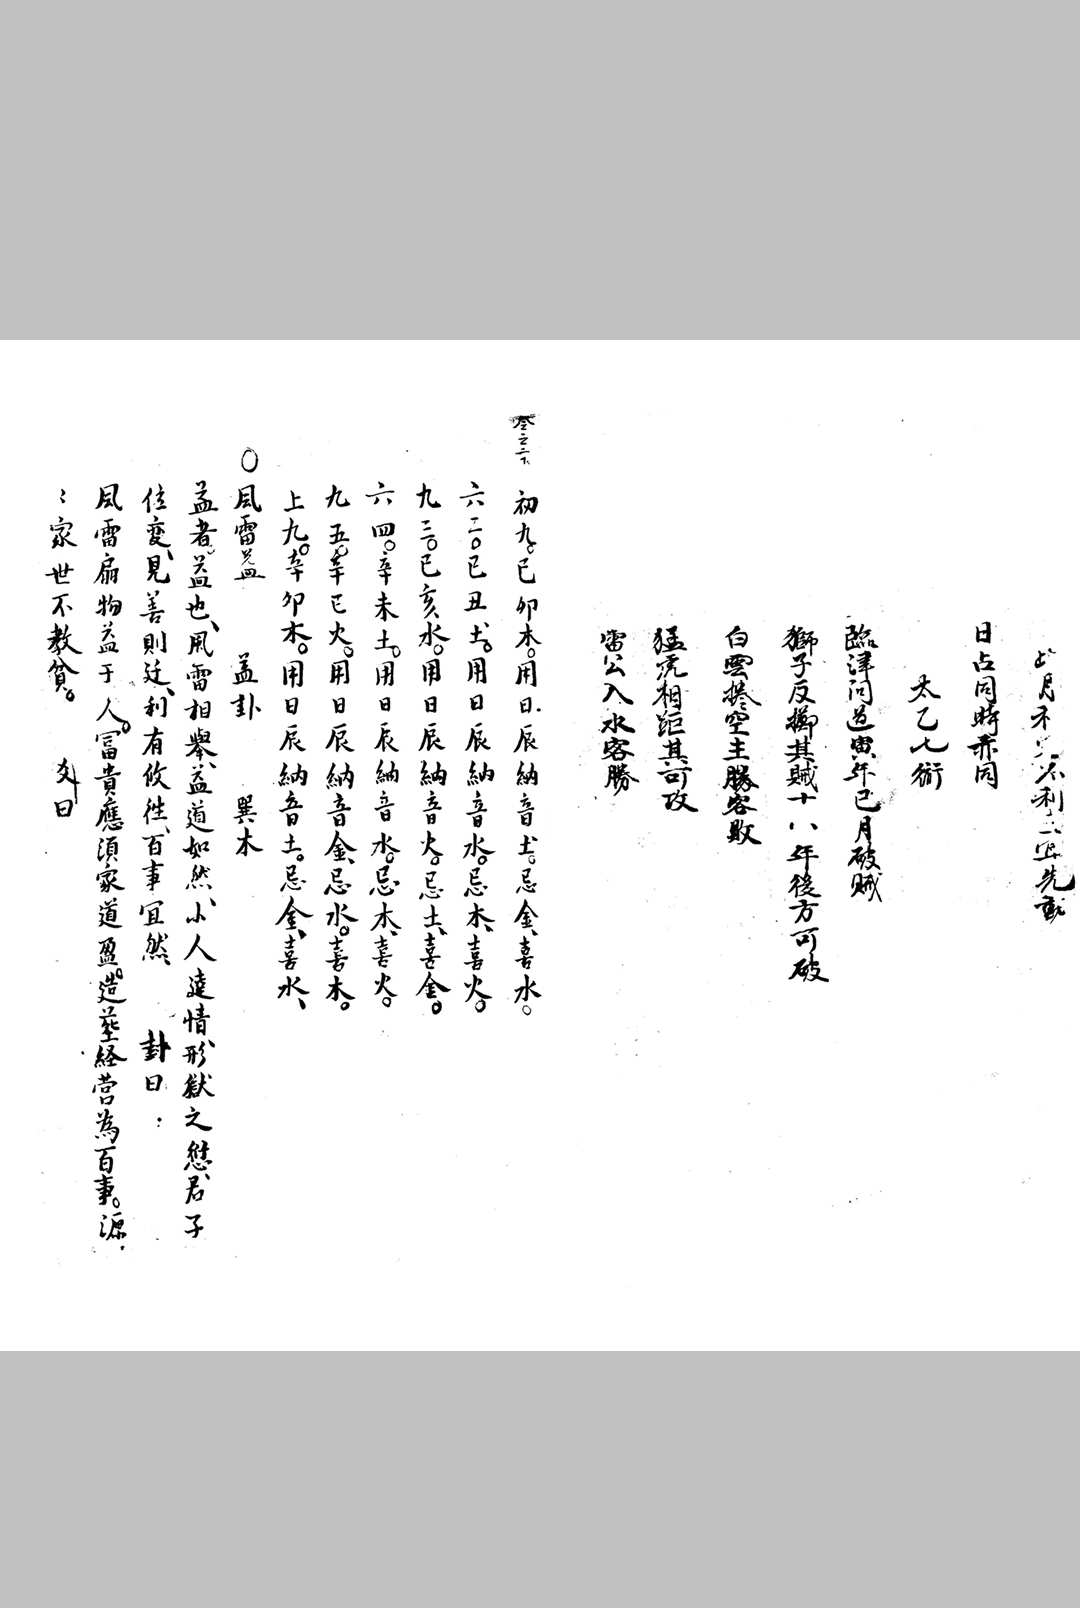 月不利宜先動
日占同時亦同
太乙七術
臨津問道寅年巳月破賊
獅子反擲其賊十八年後方可破
白雲捲空主勝客敗
猛虎相距其可攻
雷公入水客勝
初九。己卯木。用日辰納音土。忌金、喜水。
六二。己丑土。用日辰納音水。忌木、喜火。
九三。己亥水。用日辰納音火。忌土、喜金。
六四。辛未土。用日辰納音水。忌木、喜火。
九五。辛巳火。用日辰納音金、忌水。喜木。
上九。辛卯木。用日辰納音土。忌金、喜水、
〇風雷益 益卦 巽木
益者。益也、風雷相舉、益道如然、小人違情、形獄之愆、君子
位變、見善則迁、利有攸往、百事宜然、 卦曰：
風雷扇物益于人。冨貴應須家道盈。造塟経营為百事。源
：家世不教貧。 爻曰